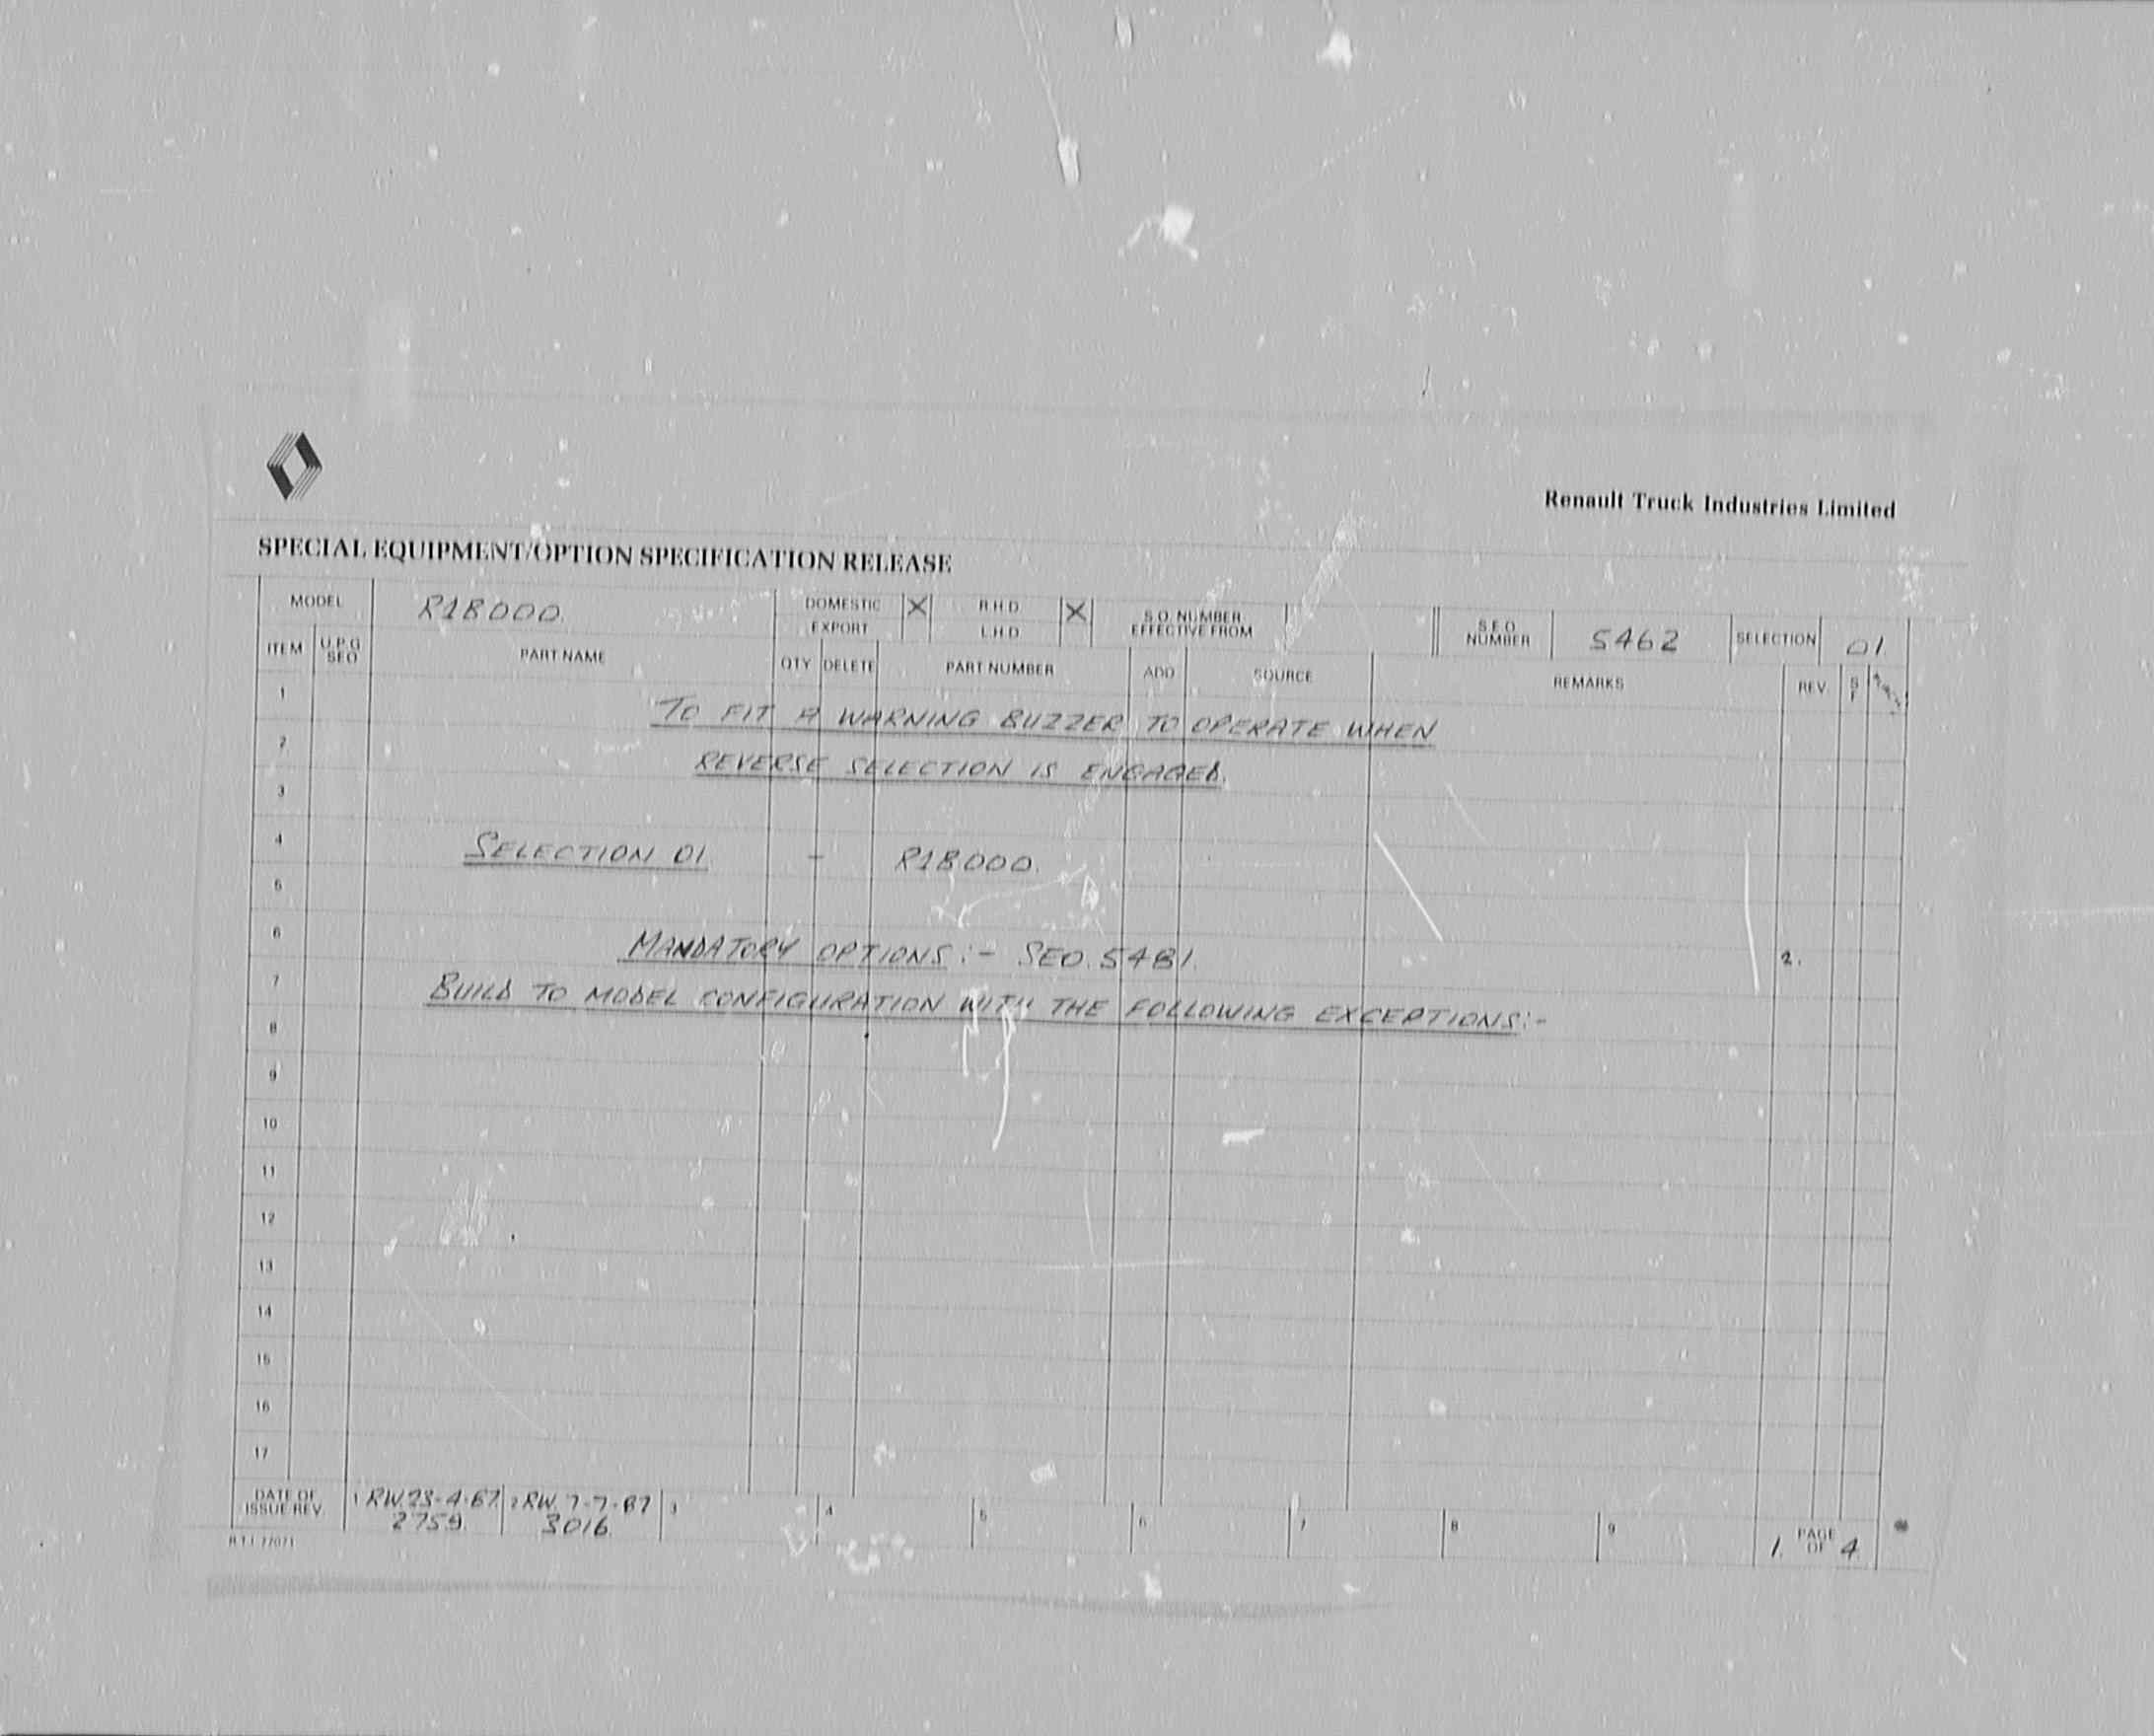 Renault Truck Industries Limited
SPECIAL EQUIPMENT/OPTION SPECIFICATION RELEASE
MODEL R18000. DOMESTIC X R.H.D. X S.O. NUMBER S.E.O. NUMBER 5462 SELECTION 01
EXPORT L.H.D. EFFECTIVE FROM
ITEM U.P.G SEO PART NAME QTY DELETE PART NUMBER ADD SOURCE REMARKS REV. S F
1 TO FIT A WARNING BUZZER TO OPERATE WHEN
2 REVERSE SELECTION IS ENGAGED.
3
4 SELECTION 01 - R18000.
5
6 MANDATORY OPTIONS:- SEO. 5481. 2.
7 BUILD TO MODEL CONFIGURATION WITH THE FOLLOWING EXCEPTIONS:-
8
9
10
11
12
13
14
15
16
17
DATE OF ISSUE/REV. 1 RW. 23-4-87 2 RW. 7-7-87 3 4 5 6 7 8 9 1. PAGE OF 4
2759. 3016.
R.T.I. 77071